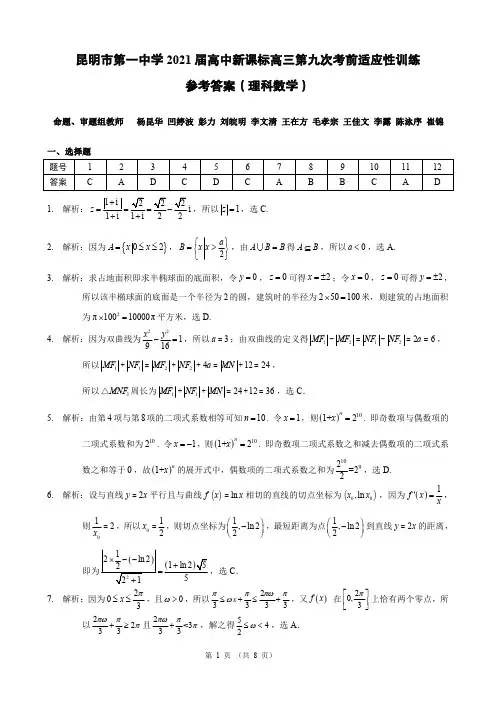 昆明市第一中学2021届高中新课标高三第九次考前适应性训练
参考答案（理科数学）
命题、审题组教师 杨昆华 凹婷波 彭力 刘皖明 李文清 王在方 毛孝宗 王佳文 李露 陈泳序 崔锦
一、选择题
题号 1 2 3 4 5 6 7 8 9 10 11 12
答案 C A D C D C A B B C A D
1. 解析：z = |1+i|/(1+i) = √2/(1+i) = √2/2 − √2/2 i，所以|z| = 1，选 C.
2. 解析：因为 A = {x|0 ≤ x ≤ 2}，B = {x|x > a/2}，由 A∪B = B 得 A ⊆ B，所以 a < 0，选 A.
3. 解析：求占地面积即求半椭球面的底面积，令 y = 0，z = 0 可得 x = ±2；令 x = 0，z = 0 可得 y = ±2，
所以该半椭球面的底面是一个半径为 2 的圆，建筑时的半径为 2×50=100 米，则建筑的占地面积
为 π×100² = 10000π 平方米，选 D.
4. 解析：因为双曲线为 x²/9 − y²/16 = 1，所以 a = 3；由双曲线的定义得 |MF₁| − |MF₂| = |NF₁| − |NF₂| = 2a = 6，
所以 |MF₁| + |NF₁| = |MF₂| + |NF₂| + 4a = |MN| + 12 = 24，
所以 △MNF₁ 周长为 |MF₁| + |NF₁| + |MN| = 24 + 12 = 36，选 C．
5. 解析：由第 4 项与第 8 项的二项式系数相等可知 n = 10. 令 x = 1，则 (1+x)ⁿ = 2¹⁰. 即奇数项与偶数项的
二项式系数和为 2¹⁰. 令 x = −1，则 (1+x)ⁿ = 2¹⁰. 即奇数项二项式系数之和减去偶数项的二项式系
数之和等于 0，故 (1+x)ⁿ 的展开式中，偶数项的二项式系数之和为 2¹⁰/2 = 2⁹，选 D.
6. 解析：设与直线 y = 2x 平行且与曲线 f(x) = ln x 相切的直线的切点坐标为 (x₀, ln x₀)，因为 f'(x) = 1/x，
则 1/x₀ = 2，所以 x₀ = 1/2，则切点坐标为 (1/2, −ln2)，最短距离为点 (1/2, −ln2) 到直线 y = 2x 的距离，
即为 |2×1/2 − (−ln2)|/√(2²+1) = (1+ln2)√5/5，选 C．
7. 解析：因为 0 ≤ x ≤ 2π/3，且 ω > 0，所以 π/3 ≤ ωx + π/3 ≤ 2πω/3 + π/3，又 f(x) 在 [0, 2π/3] 上恰有两个零点，所
以 2πω/3 + π/3 ≥ 2π 且 2πω/3 + π/3 < 3π，解之得 5/2 ≤ ω < 4，选 A．
第 1 页 （共 8 页）